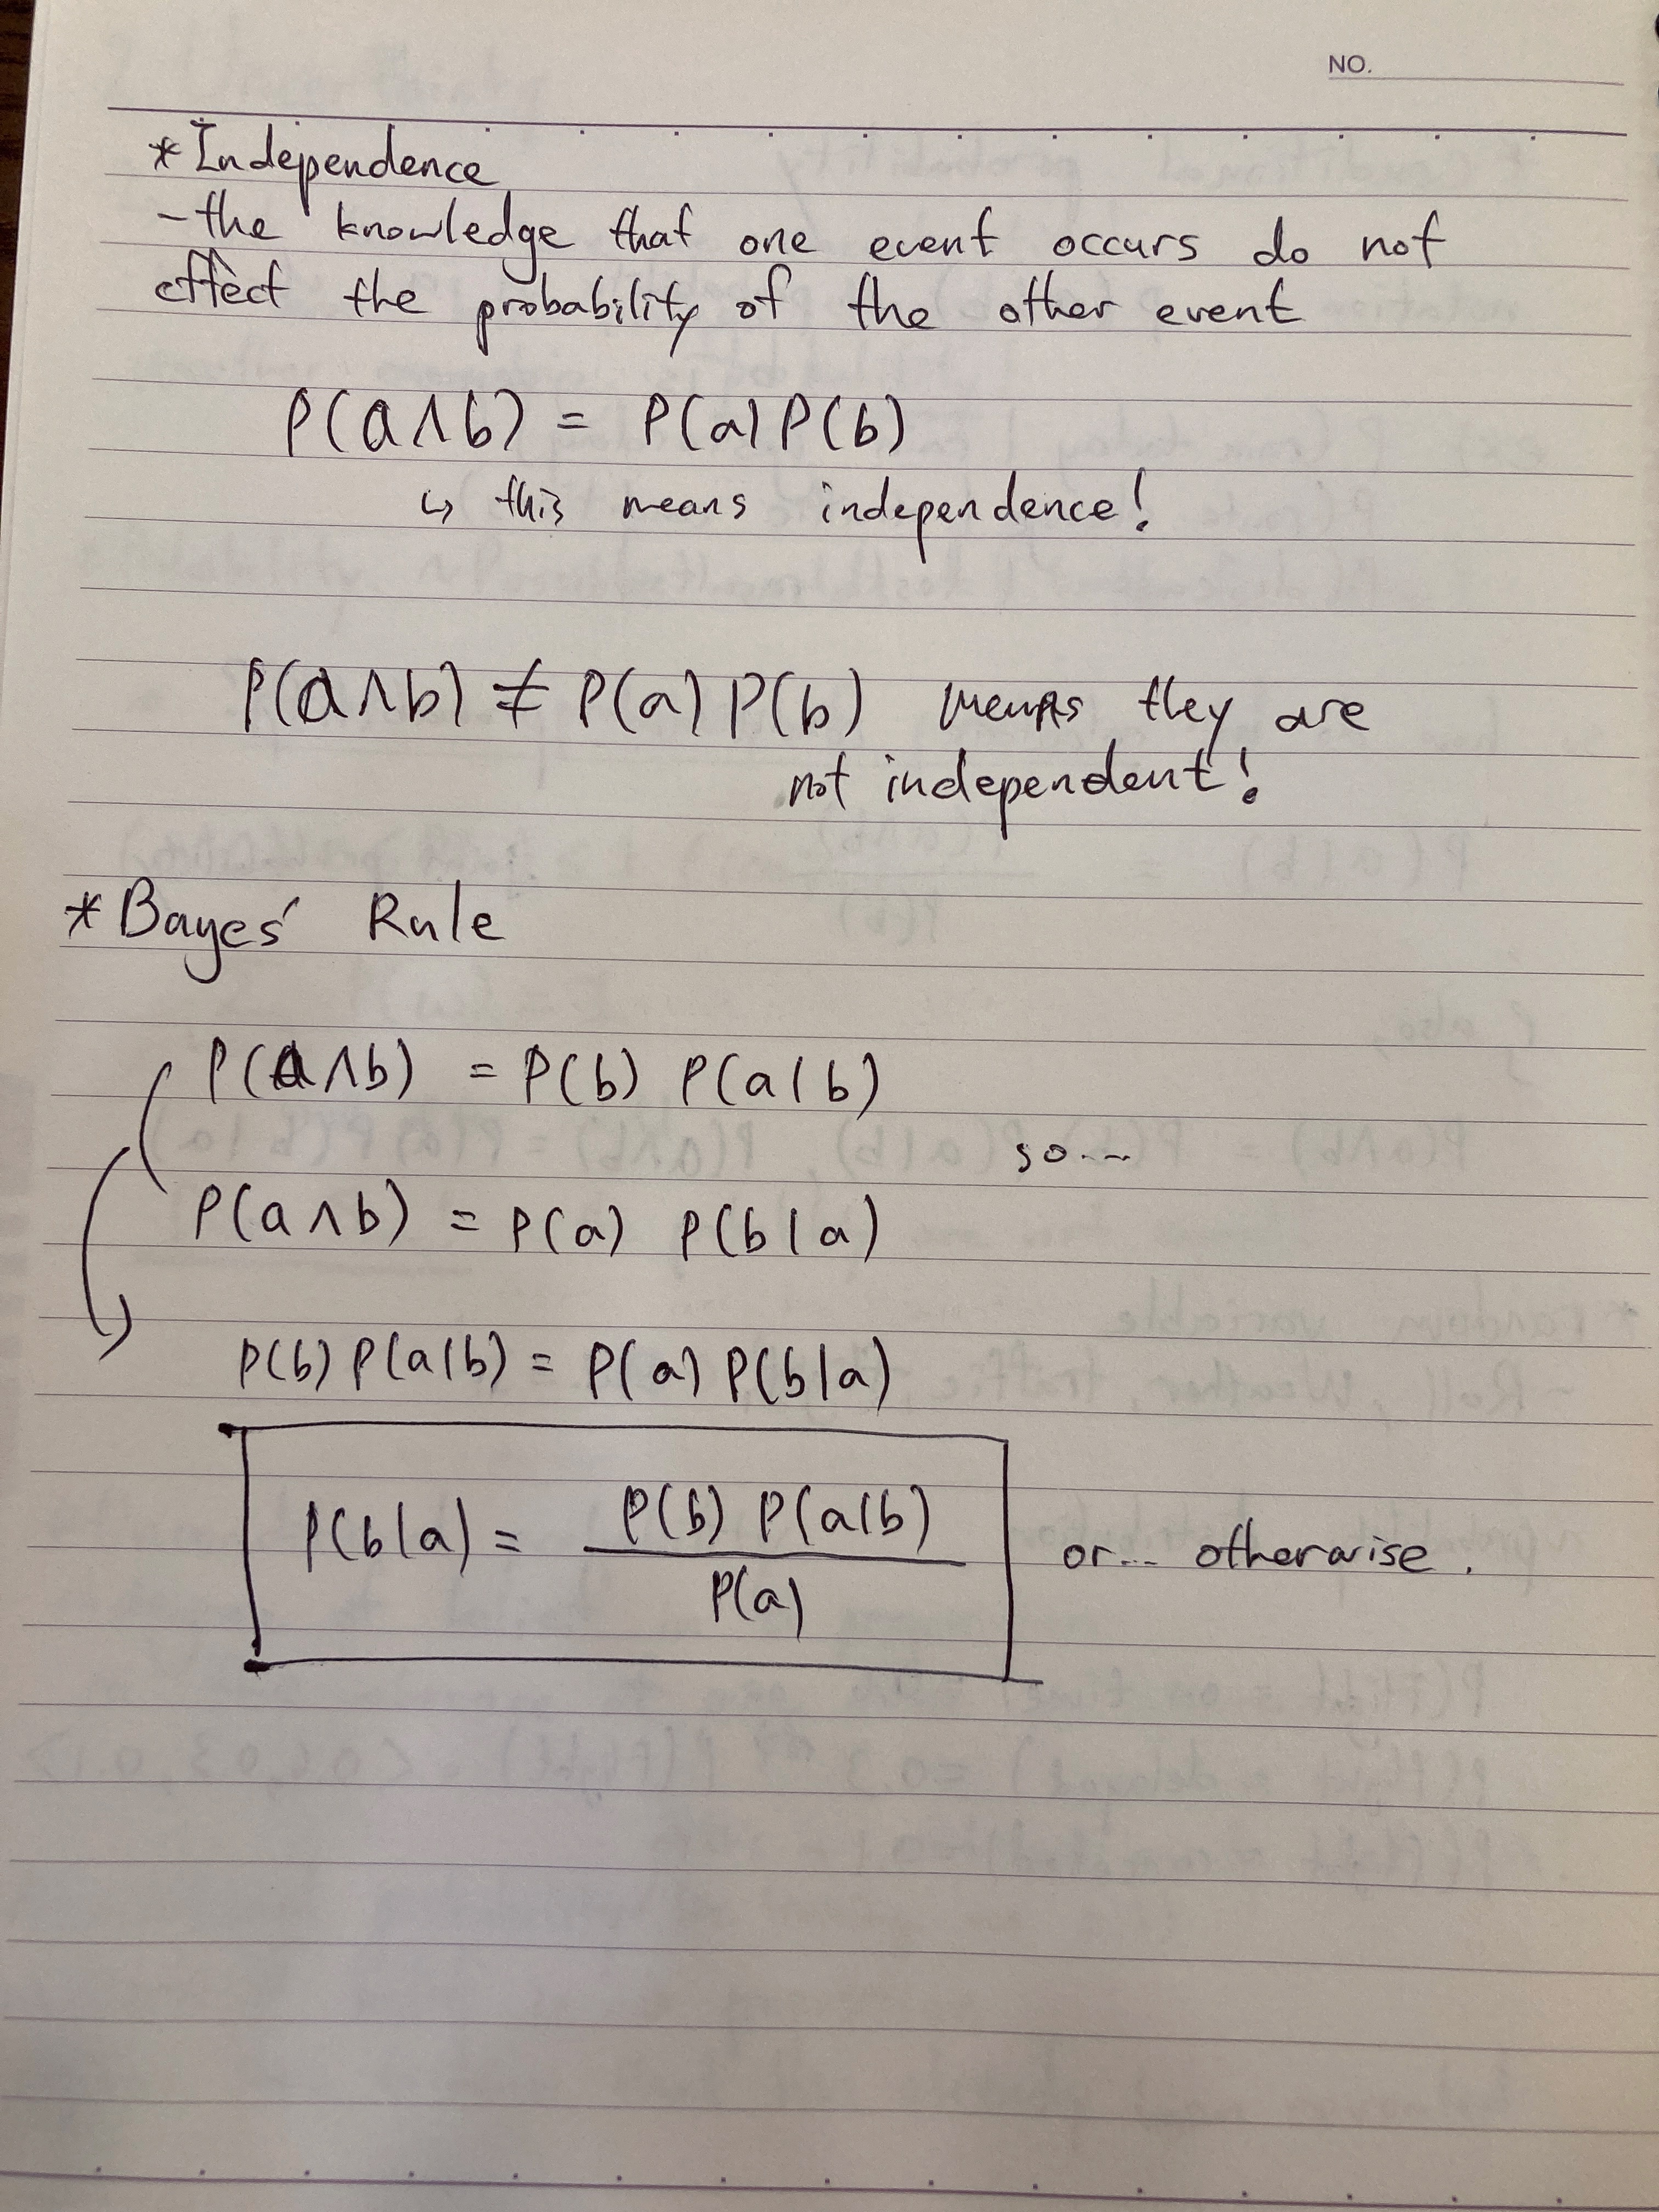 NO.
*Independence
-the knowledge that one event occurs do not
effect the probability of the other event
P(a∧b) = P(a)P(b)
↳ this means independence!
P(a∧b) ≠ P(a)P(b) means they are
not independent!
*Bayes' Rule
P(a∧b) = P(b) P(a|b)
so...
P(a∧b) = P(a) P(b|a)
P(b)P(a|b) = P(a)P(b|a)
P(b|a) = P(b) P(a|b) / P(a) or... otherwise.